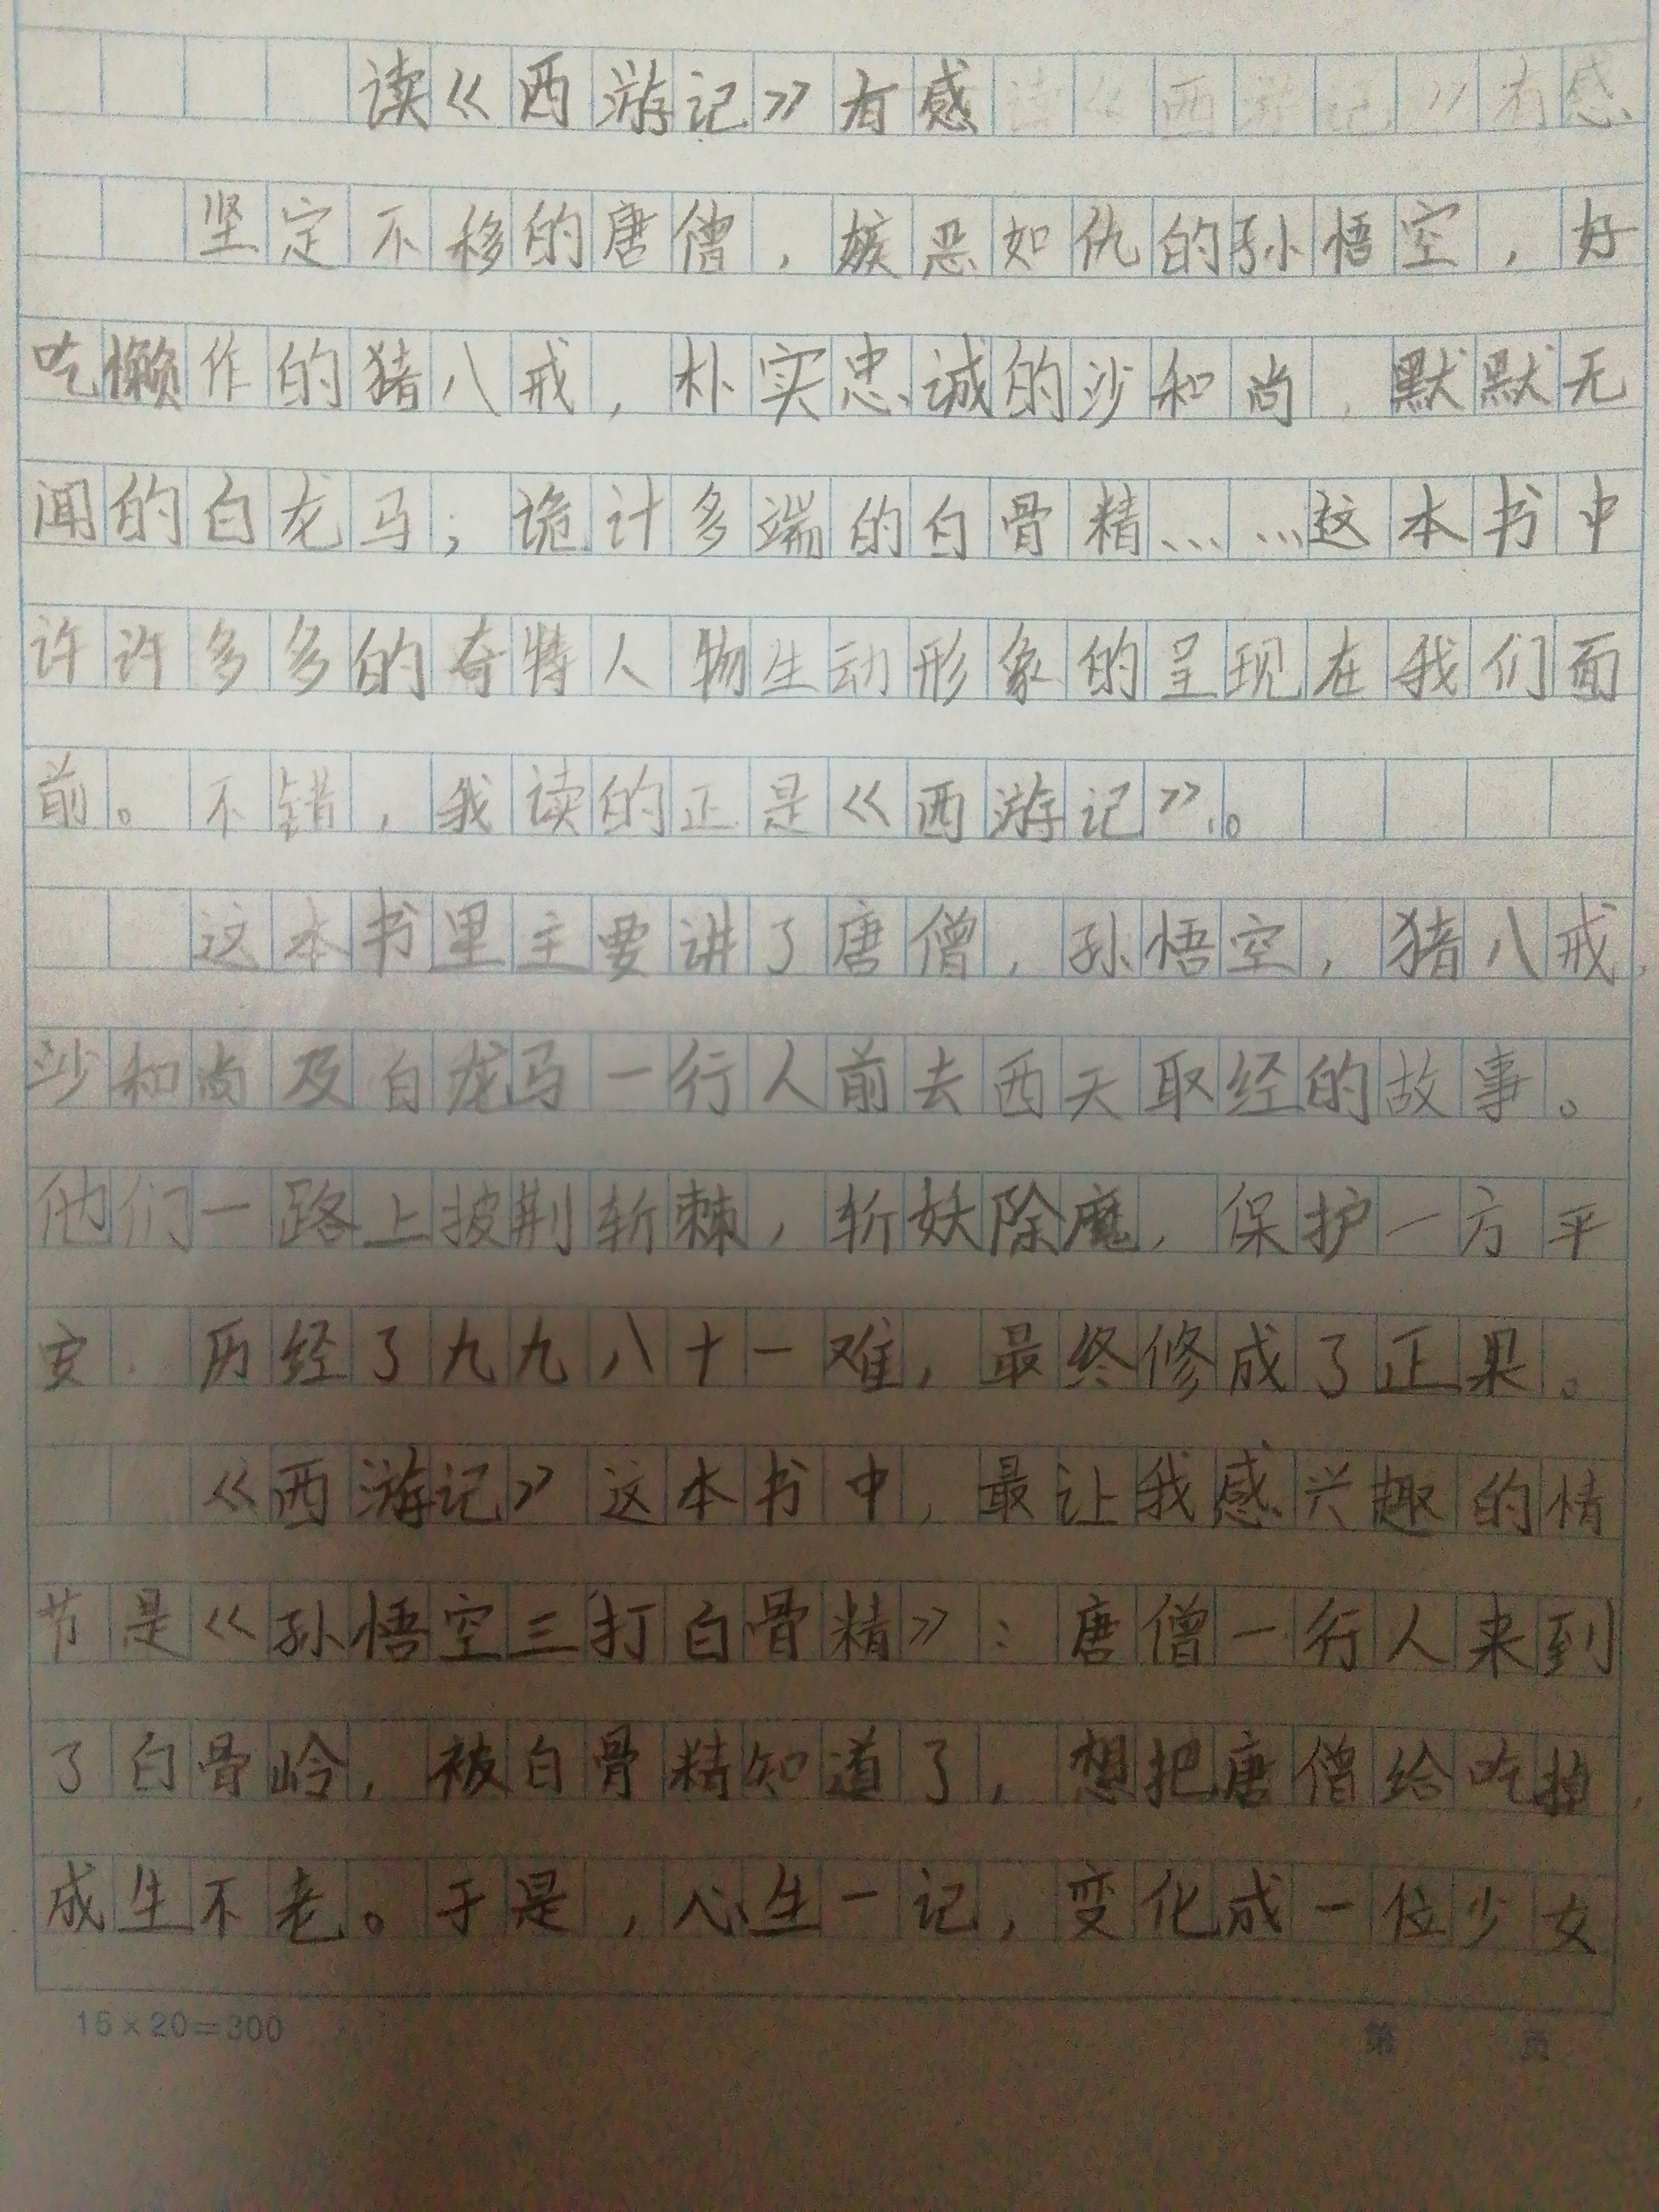 读《西游记》有感读《西游记》有感
坚定不移的唐僧，嫉恶如仇的孙悟空，好
吃懒作的猪八戒，朴实忠诚的沙和尚，默默无
闻的白龙马；诡计多端的白骨精……这本书中
许许多多的奇特人物生动形象的呈现在我们面
前。不错，我读的正是《西游记》。
这本书里主要讲了唐僧，孙悟空，猪八戒，
沙和尚及白龙马一行人前去西天取经的故事。
他们一路上披荆斩棘，斩妖除魔，保护一方平
安．历经了九九八十一难，最终修成了正果。
《西游记》这本书中，最让我感兴趣的情
节是《孙悟空三打白骨精》：唐僧一行人来到
了白骨岭，被白骨精知道了，想把唐僧给吃掉，
成生不老。于是，心生一记，变化成一位少女
15×20=300 第 页